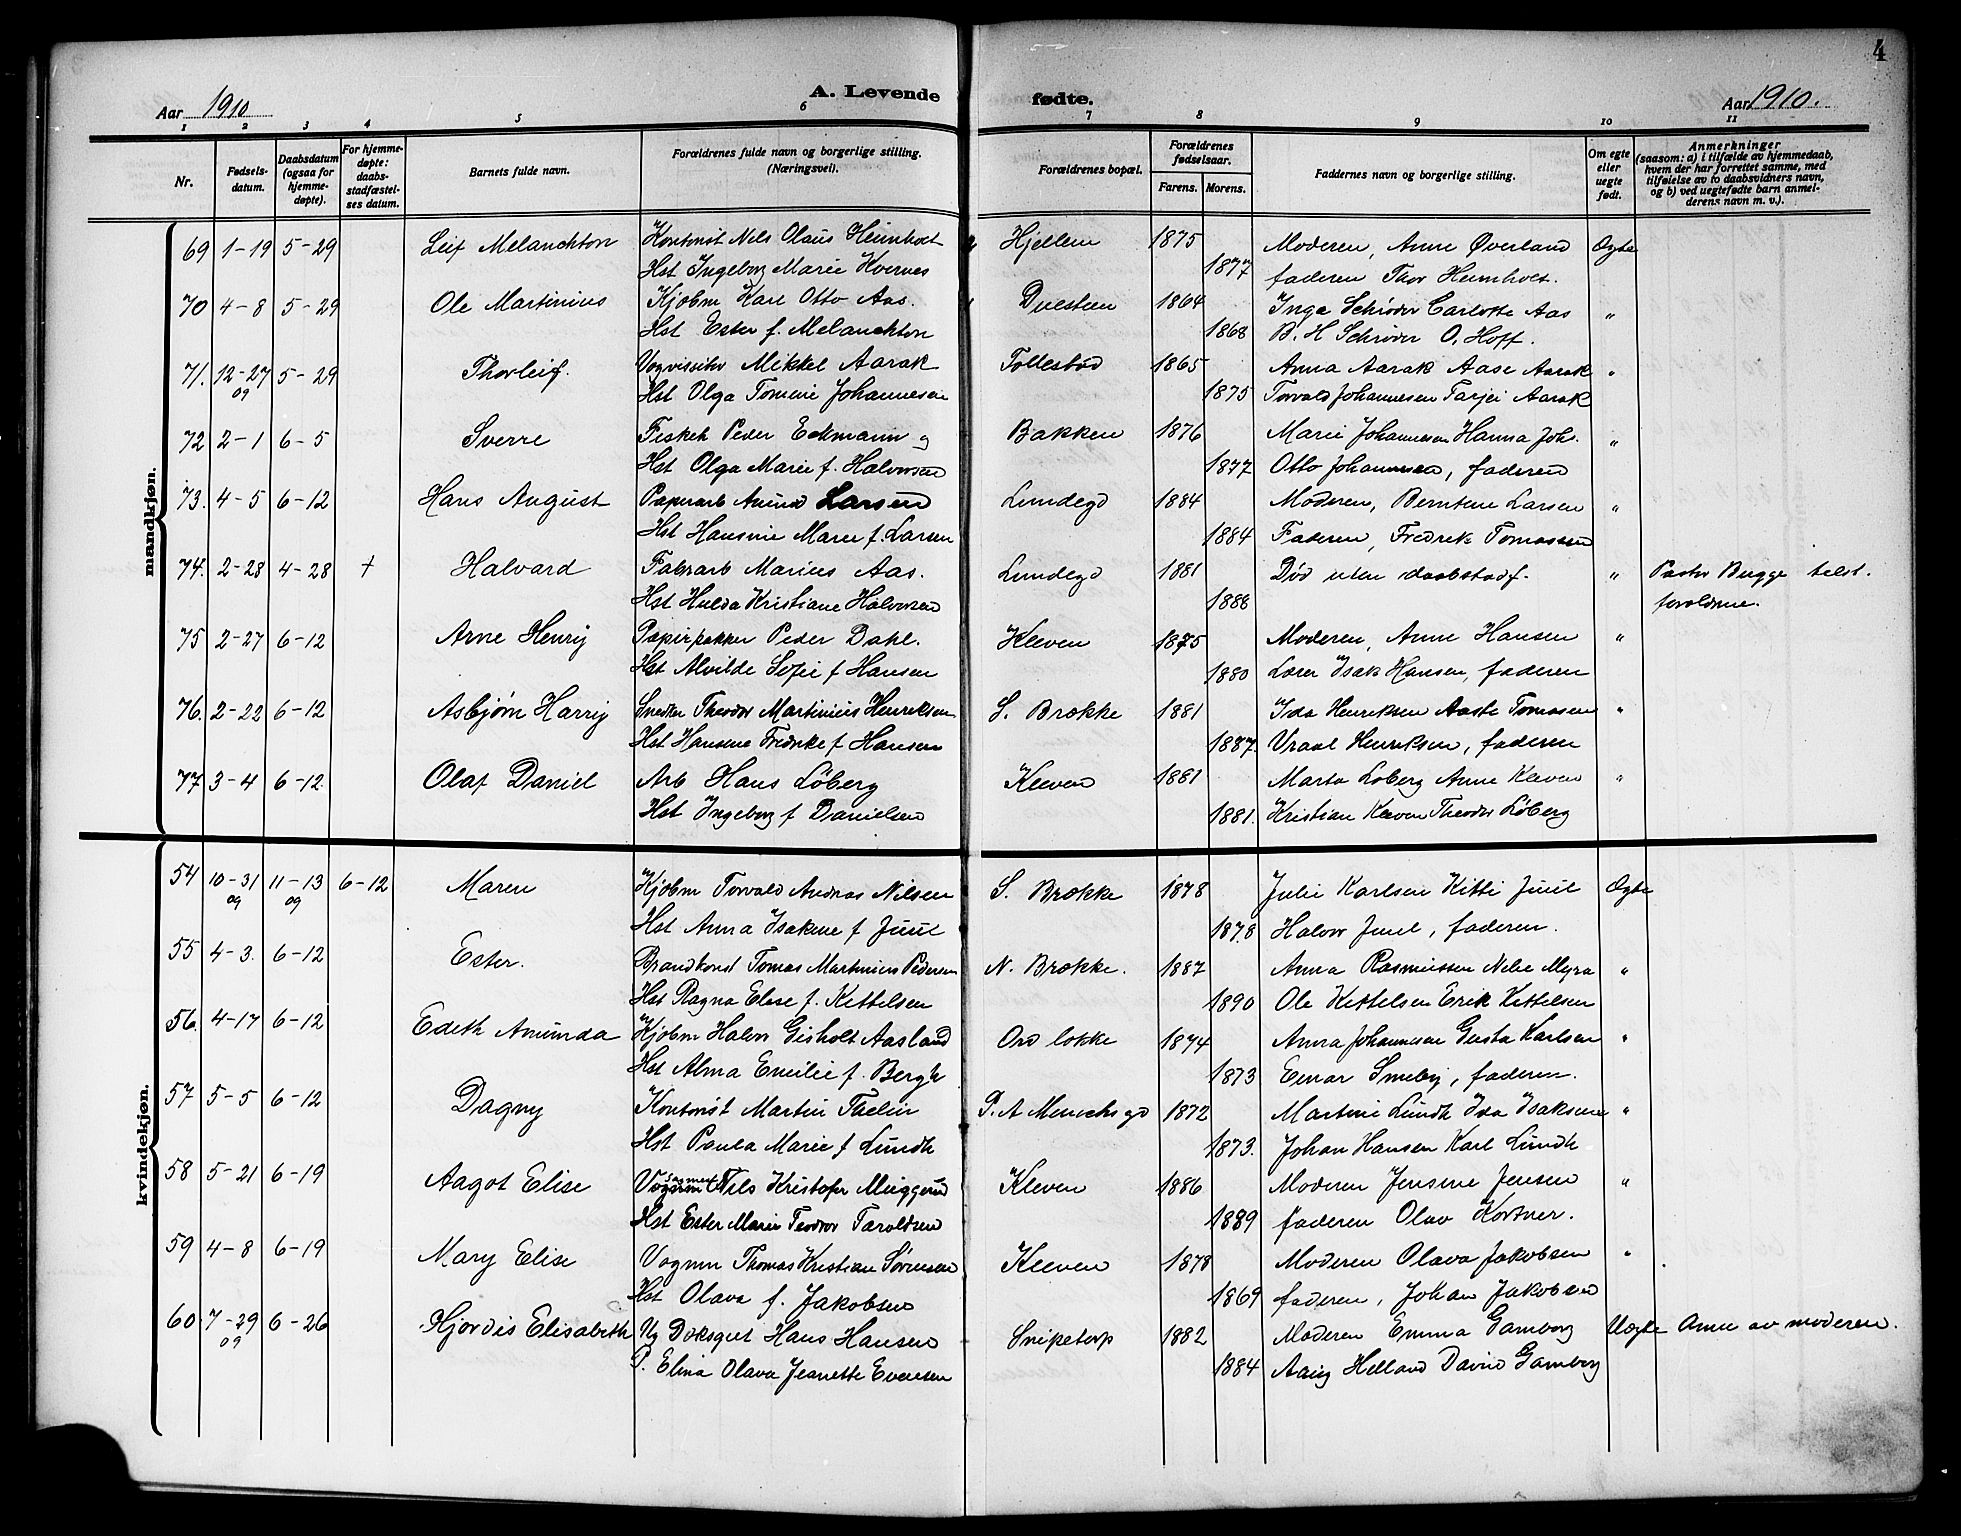 4
Aar 1910
A. Levende fødte.
Aar 1910.
1 2 3 4 5 6 7 8 9 10 11
Nr.
Fødsels-
datum.
Daabsdatum
(ogsaa for
hjemme-
døpte).
For hjemme-
døpte:
daabs-
stadfæstel-
ses datum.
Barnets fulde navn.
Forældrenes fulde navn og borgerlige stilling.
(Næringsvei).
Forældrenes bopæl.
Forældrenes
fødselsaar.
Farens. Morens.
Faddernes navn og borgerlige stilling.
Om egte
eller
uegte
født.
Anmerkninger
(saasom: a) i tilfælde av hjemmedaab,
hvem der har forrettet samme, med
tilføielse av to daabsvidners navn,
og b) ved uegtefødte barn anmel-
derens navn m. v.).
mandkjøn.
69 1-19 5-29 Leif Melanchton Kontorist Nels Olaus Heimholt Hjellen 1875 Moderen, Anne Øverland Ægte
Hst Ingeborg Marie Kvernes 1877 faderen Thor Heimholt.
70 4-8 5-29 Ole Martinius Kjøbm Karl Otto Aas. 1864 Inga Schrøder Carlotte Aas "
Hst Ester f. Melanchton 1868 B. H Schrøder O. Hoff.
71. 12-27 5-29 Thorleif. Mikkel Aarak Follestad 1865 Anna Aarak Aase Aarak "
09 Hst Olga Tomine Johannesen 1875 Torvald Johannesen Tarjei Aarak
72 2-1 6-5 Sverre Fiskeh Peder Eckmann og Bakken 1876 Marie Johannesen Hanna Joh. "
Hst Olga Marie f. Halvorsen 1877 Otto Johannesen, faderen
73. 4-5 6-12 Hans August Papirarb Amund Larsen Lundegd 1884 Moderen, Berntine Larsen "
Hst Hansine Marie f. Larsen 1884 Faderen, Fredrik Tomassen
74. 2-28 4-28 + Halvard Fabrarb Marius Aas. Lundegd 1881 Død uten daabstadf. " Pastor Bugge tilst.
Hst Hulda Kristiane Halvorsen 1888 foreldrene.
75 2-27 6-12 Arne Henry Papirpakker Peder Dahl. Kleven 1875 Moderen, Anne Hansen "
Hst Alvilde Sofie f Hansen 1880 Lærer Isak Hansen, faderen
76. 2-22 6-12 Asbjørn Harry Snedker Theodor Martinius Henriksen S. Brække 1881 Ida Henriksen Aaste Tomasen "
Hst Hansene Fredrike f Hansen 1887. Vraal Henriksen, faderen
77 3-4 6-12. Olaf Daniel Arb Hans Løberg Kleven 1881 Marta Løberg Anne Kleven "
Hst Ingeborg f Danielsen 1881. Kristian Kleven Theodor Løberg
kvindekjøn.
54 10-31 11-13 6-12 Maren Kjøbm Torvald Andreas Nilsen S. Brække 1878 Julie Karlsen Kitti Juul Ægte
09 09 Hst Anna Isakine f Juul 1878 Halvor Juul, faderen.
55 4-3. 6-12 Ester. Brandkonst Tomas Martinius Pedersen N. Brække. 1887 Anna Rasmussen Nelie Myra "
Hst Ragna Elise f. Kettelsen 1890 Ole Kettelsen Erik Kettelsen
56. 4-17 6-12 Edith Amunda Kjøbm Halvor Gisholt Aasland Ovd løkke 1874 Anna Johannesen Gusta Karlsen "
Hst Alma Emilie f. Bergh 1873 Einar Smeby, faderen.
57 5-5 6-12 Dagny Kontorist Martin Thelin P. A Munchs gd 1872 Martine Lundh Ida Isaksen "
Hst Paula Marie f Lundh 1873. Johan Hansen Karl Lundh
58 5-21 6-19 Aagot Elise Nils Kristofer Muggerud Kleven 1886 Moderen Jensine Jensen "
Hst Ester Marie Teodor Taroldsen 1889 faderen Olav Kortner.
59 4-8 6-19 Mary Elise Vognm Thomas Kristian Sørensen Kleven 1878 Moderen Olava Jakobsen "
Hst Olava f. Jakobsen 1869 faderen, Johan Jakobsen
60. 7-29 6-26 Hjørdis Elisabeth Ug Doksgut Hans Hansen Snipetorp 1882 Moderen Emma Gamborg Uægte Anm av moderen.
09 P. Elina Olava Jeanette Evensen 1884 Aasig Helland David Gamborg